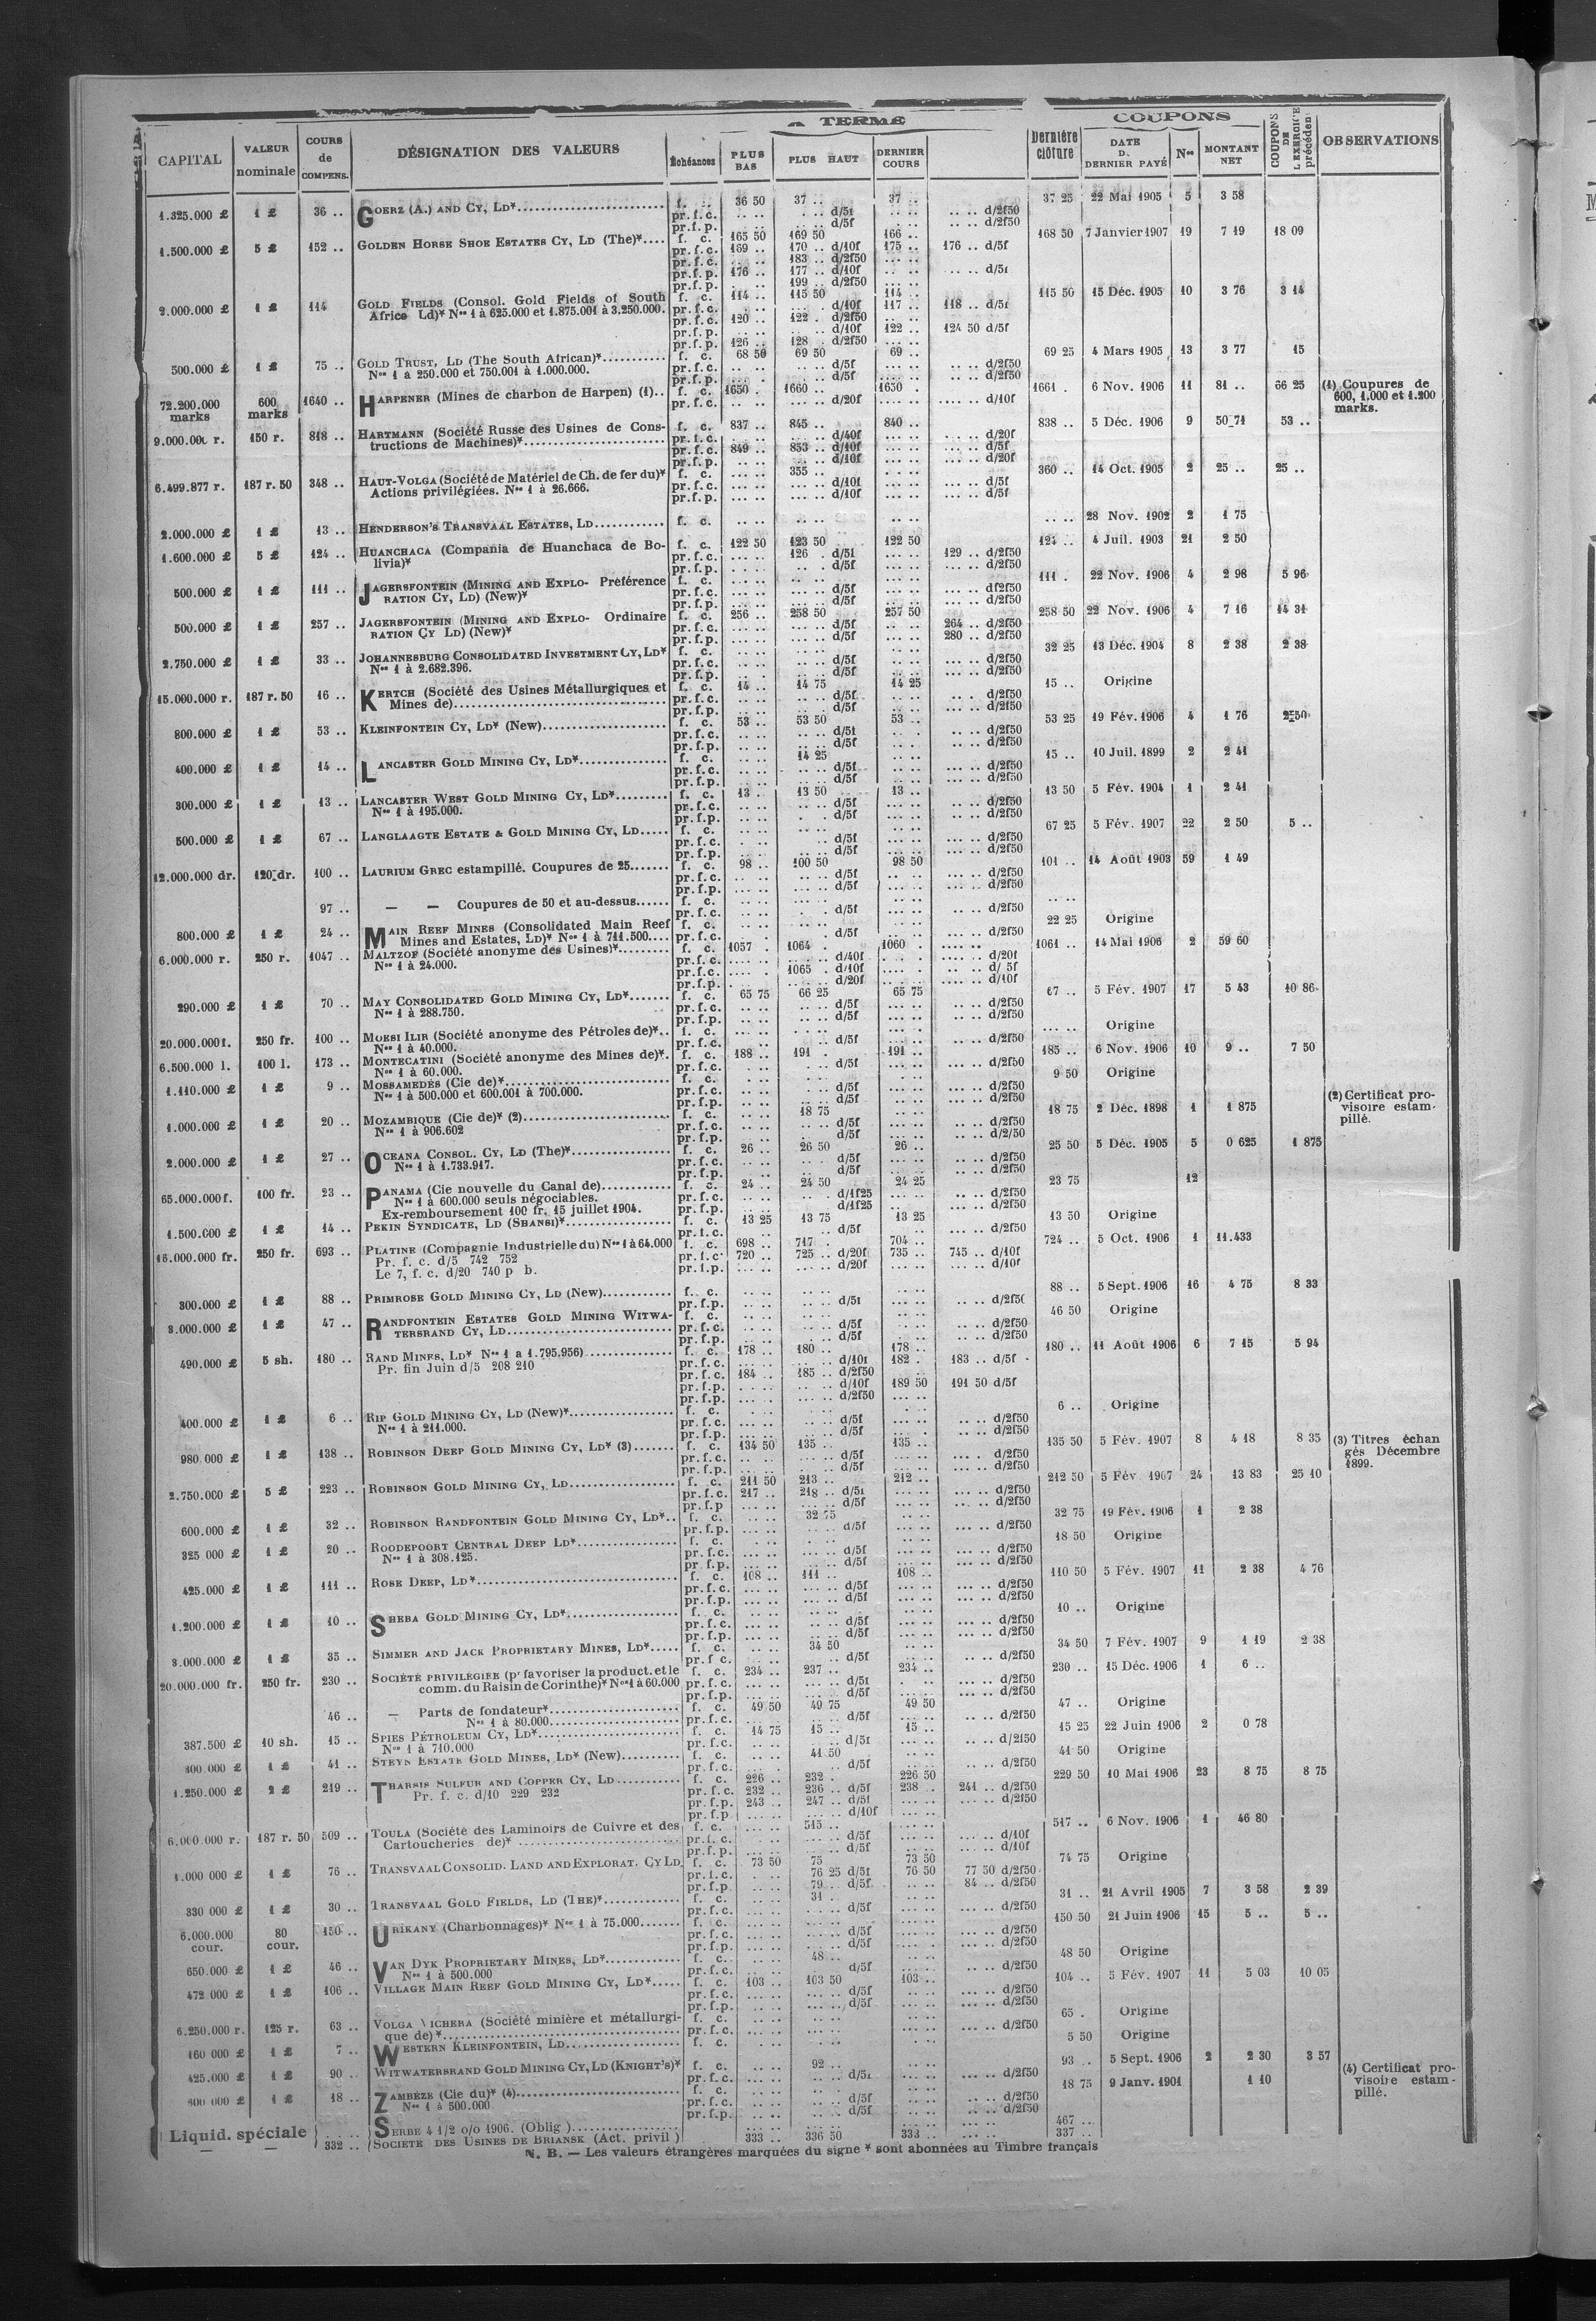 A TERME
COUPONS
CAPITAL
VALEUR nominale
COURS de COMPENS.
DÉSIGNATION DES VALEURS
Échéances
PLUS BAS
PLUS HAUT
DERNIER COURS
Dernière clôture
DATE D. DERNIER PAYÉ
Nos
MONTANT NET
COUPONS DE L EXERCICE précéden
OBSERVATIONS
1.325.000 £ 1 £ 36 .. GOERZ (A.) AND CY, LD* f. .. 36 50 37 .. 37 .. 37 25 22 Mai 1905 5 3 58
pr.f.c. .. .. .. .. d/5f .. .. d/2f50
pr.f.p. .. .. d/5f .. .. d/2f50
1.500.000 £ 5 £ 152 .. GOLDEN HORSE SHOE ESTATES CY, LD (The)*.... f. c. 165 50 169 50 166 .. 168 50 7 Janvier 1907 19 7 19 18 09
pr.f.c. 169 .. 170 .. d/10f 175 .. 176 .. d/5f
pr.f.c. .. .. 183 .. d/2f50
pr.f.p. 176 .. 177 .. d/10f .. .. d/5f
pr.f.p. 199 .. d/2f50
2.000.000 £ 1 £ 114 GOLD FIELDS (Consol. Gold Fields of South f. c. 114 .. 115 50 114 .. 115 50 15 Déc. 1905 10 3 76 3 14
Africa Ld)* Nos 1 à 625.000 et 1.875.001 à 3.250.000. pr.f.c. d/10f 117 .. 118 .. d/5f
pr.f.c. 120 .. 122 . d/2f50
pr.f.p. d/10f 122 .. 124 50 d/5f
pr.f.p. 126 .. 128 . d/2f50
500.000 £ 1 £ 75 .. GOLD TRUST, LD (The South African)* f. c. 68 50 69 50 69 .. 69 25 4 Mars 1905 13 3 77 15
Nos 1 à 250.000 et 750.001 à 1.000.000. pr.f.c. d/5f d/2f50
pr.f.p. d/5f d/2f50
72.200.000 marks 600 marks 1640 .. HARPENER (Mines de charbon de Harpen) (1).. f. c. 1650 . 1660 .. 1650 . 1661 . 6 Nov. 1906 11 81 .. 66 25 (1) Coupures de 600, 1.000 et 1.200 marks.
pr.f.c. d/20f d/10f
150 r. 818 .. HARTMANN (Société Russe des Usines de Cons- f. c. 837 .. 845 .. 840 .. 838 .. 5 Déc. 1906 9 50 71 53 ..
tructions de Machines)* pr.f.c. d/40f d/20f
pr.f.c. 849 .. 853 .. d/10f d/5f
pr.f.p. d/10f d/20f
6.499.877 r. 187 r. 50 348 .. HAUT-VOLGA (Société de Matériel de Ch. de fer du)* f. c. 355 .. 360 .. 14 Oct. 1905 2 25 .. 25 ..
Actions privilégiées. Nos 1 à 26.666. pr.f.c. d/10f d/5f
pr.f.p. d/10f d/5f
2.000.000 £ 1 £ 13 .. HENDERSON'S TRANSVAAL ESTATES, LD f. c. .. .. 28 Nov. 1902 2 1 75
1.600.000 £ 5 £ 124 .. HUANCHACA (Compania de Huanchaca de Bo- f. c. 122 50 123 50 122 50 124 .. 4 Juil. 1903 21 2 50
livia)* pr.f.c. 126 . d/5f 129 .. d/2f50
pr.f.p. d/5f d/2f50
500.000 £ 1 £ 111 .. JAGERSFONTEIN (MINING AND EXPLO- Préférence f. c. 111 . 22 Nov. 1906 4 2 98 5 96
RATION CY, LD) (New)* pr.f.c. d/5f df2f50
pr.f.p. d/5f d/2f50
500.000 £ 1 £ 257 .. JAGERSFONTEIN (MINING AND EXPLO- Ordinaire f. c. 256 .. 258 50 257 50 258 50 22 Nov. 1906 4 7 16 14 31
RATION CY LD) (New)* pr.f.c. d/5f 264 .. d/2f50
pr.f.p. d/5f 280 .. d/2f50
2.750.000 £ 1 £ 33 .. JOHANNESBURG CONSOLIDATED INVESTMENT CY, LD* f. c. 32 25 13 Déc. 1904 8 2 38 2 38
Nos 1 à 2.682.396. pr.f.c. d/5f d/2f50
pr.f.p. d/5f d/2f50
15.000.000 r. 187 r. 50 16 .. KERTCH (Société des Usines Métallurgiques et f. c. 14 .. 14 75 14 25 15 .. Origine
Mines de) pr.f.c. d/5f d/2f50
pr.f.p. d/5f d/2f50
800.000 £ 1 £ 53 .. KLEINFONTEIN CY, LD* (New) f. c. 53 .. 53 50 53 .. 53 25 19 Fév. 1906 4 1 76 2 50
pr.f.c. d/5f d/2f50
pr.f.p. d/5f d/2f50
400.000 £ 1 £ 14 .. LANCASTER GOLD MINING CY, LD* f. c. 14 25 15 .. 10 Juil. 1899 2 2 41
pr.f.c. d/5f d/2f50
pr.f.p. d/5f d/2f50
300.000 £ 1 £ 13 .. LANCASTER WEST GOLD MINING CY, LD* f. c. 13 .. 13 50 13 .. 13 50 5 Fév. 1904 1 2 41
Nos 1 à 195.000. pr.f.c. d/5f d/2f50
pr.f.p. d/5f d/2f50
500.000 £ 1 £ 67 .. LANGLAAGTE ESTATE & GOLD MINING CY, LD f. c. 67 25 5 Fév. 1907 22 2 50 5 ..
pr.f.c. d/5f d/2f50
pr.f.p. d/5f d/2f50
12.000.000 dr. 120 dr. 100 .. LAURIUM GREC estampillé. Coupures de 25 f. c. 98 .. 100 50 98 50 101 .. 14 Août 1903 59 1 49
pr.f.c. d/5f d/2f50
pr.f.p. d/5f d/2f50
97 .. — — Coupures de 50 et au-dessus f. c.
pr.f.c. d/5f d/2f50
800.000 £ 1 £ 24 .. MAIN REEF MINES (Consolidated Main Reef f. c. 22 25 Origine
Mines and Estates, LD)* Nos 1 à 711.500 pr.f.c. d/5f d/2f50
6.000.000 r. 250 r. 1047 .. MALTZOF (Société anonyme des Usines)* f. c. 1057 1064 . 1060 . 1061 .. 14 Mai 1906 2 59 60
Nos 1 à 24.000. pr.f.c. d/40f d/20f
pr.f.c. 1065 . d/10f d/ 5f
pr.f.p. d/20f d/10f
290.000 £ 1 £ 70 .. MAY CONSOLIDATED GOLD MINING CY, LD* f. c. 65 75 66 25 65 75 67 .. 5 Fév. 1907 17 5 43 10 86
Nos 1 à 288.750. pr.f.c. d/5f d/2f50
pr.f.p. d/5f d/2f50
20.000.000f. 250 fr. 100 .. MOESI ILIR (Société anonyme des Pétroles de)* f. c. Origine
Nos 1 à 40.000. pr.f.c. d/5f d/2f50
6.500.000 l. 100 l. 173 .. MONTECATINI (Société anonyme des Mines de)*. f. c. 188 .. 191 . 191 .. 185 .. 6 Nov. 1906 10 9 .. 7 50
Nos 1 à 60.000. pr.f.c. d/5f d/2f50
1.110.000 £ 1 £ 9 .. MOSSAMEDÈS (Cie de)* f. c. 9 50 Origine
Nos 1 à 500.000 et 600.001 à 700.000. pr.f.c. d/5f d/2f50
pr.f.p. d/5f d/2f50
1.000.000 £ 1 £ 20 .. MOZAMBIQUE (Cie de)* (2) f. c. 18 75 18 75 2 Déc. 1898 1 1 875 (2) Certificat provisoire estampillé.
Nos 1 à 906.602 pr.f.c. d/5f d/2f50
pr.f.p. d/5f d/2/50
2.000.000 £ 1 £ 27 .. OCEANA CONSOL. CY, LD (The)* f. c. 26 .. 26 50 26 .. 25 50 5 Déc. 1905 5 0 625 1 875
Nos 1 à 1.733.917. pr.f.c. d/5f d/2f50
pr.f.p. d/5f d/2f50
65.000.000f. 100 fr. 23 .. PANAMA (Cie nouvelle du Canal de) f. c. 24 .. 24 50 24 25 23 75 12
Nos 1 à 600.000 seuls négociables. pr.f.c. d/1f25 d/2f50
Ex-remboursement 100 fr. 15 juillet 1904. pr.f.p. d/1f25 d/2f50
1.500.000 £ 1 £ 14 .. PEKIN SYNDICATE, LD (SHANSI)* f. c. 13 25 13 75 13 25 13 50 Origine
pr.f.c. d/5f d/2f50
16.000.000 fr. 250 fr. 693 .. PLATINE (Compagnie Industrielle du) Nos 1 à 64.000 f. c. 698 .. 717 . 704 .. 724 .. 5 Oct. 1906 1 11.433
Pr. f. c. d/5 742 752 pr.f.c. 720 .. 725 .. d/20f 735 .. 745 .. d/10f
Le 7, f. c. d/20 740 p b. pr.f.p. d/20f d/10f
300.000 £ 1 £ 88 .. PRIMROSE GOLD MINING CY, LD (New) f. c. 88 .. 5 Sept. 1906 16 4 75 8 33
pr.f.p. d/5f d/2f50
3.000.000 £ 1 £ 47 .. RANDFONTEIN ESTATES GOLD MINING WITWA- f. c. 46 50 Origine
TERSRAND CY, LD pr.f.c. d/5f d/2f50
pr.f.p. d/5f d/2f50
490.000 £ 5 sh. 180 .. RAND MINES, LD* Nos 1 a 1.795.956) f. c. 178 .. 180 .. 178 .. 180 .. 11 Août 1906 6 7 15 5 94
Pr. fin Juin d/5 208 210 pr.f.c. d/10f 182 . 183 .. d/5f
pr.f.c. 184 .. 185 .. d/2f50
pr.f.p. d/10f 189 50 191 50 d/5f
pr.f.p. d/2f50
400.000 £ 1 £ 6 .. RIP GOLD MINING CY, LD (New)* f. c. 6 .. Origine
Nos 1 à 211.000. pr.f.c. d/5f d/2f50
pr.f.p. d/5f d/2f50
980.000 £ 1 £ 138 .. ROBINSON DEEP GOLD MINING CY, LD* (3) f. c. 134 50 135 .. 135 .. 135 50 5 Fév. 1907 8 4 18 8 35 (3) Titres échan gés Décembre 1899.
pr.f.c. d/5f d/2f50
pr.f.p. d/5f d/2f50
2.750.000 £ 5 £ 223 .. ROBINSON GOLD MINING CY, LD f. c. 211 50 213 .. 212 .. 212 50 5 Fév 1907 24 13 83 25 10
pr.f.c. 217 .. 218 .. d/5f d/2f50
pr.f.p d/5f d/2f50
600.000 £ 1 £ 32 .. ROBINSON RANDFONTEIN GOLD MINING CY, LD*.. f. c. 32 75 32 75 19 Fév. 1906 1 2 38
pr.f.p. d/5f d/2f50
325 000 £ 1 £ 20 .. ROODEPOORT CENTRAL DEEP LD* f. c. 18 50 Origine
Nos 1 à 308.125. pr.f.c. d/5f d/2f50
pr.f.p. d/5f d/2f50
425.000 £ 1 £ 111 .. ROSE DEEP, LD* f. c. 108 .. 111 .. 108 .. 110 50 5 Fév. 1907 11 2 38 4 76
pr.f.c. d/5f d/2f50
pr.f.p. d/5f d/2f50
1.200.000 £ 1 £ 10 .. SHEBA GOLD MINING CY, LD* f. c. 10 .. Origine
pr.f.c. d/5f d/2f50
pr.f.p. d/5f d/2f50
3.000.000 £ 1 £ 35 .. SIMMER AND JACK PROPRIETARY MINES, LD* f. c. 34 50 34 50 7 Fév. 1907 9 1 19 2 38
pr.f.c. d/5f d/2f50
20.000.000 fr. 250 fr. 230 .. SOCIÉTÉ PRIVILÉGIÉE (pr favoriser la product. et le f. c. 234 .. 237 .. 234 .. 230 .. 15 Déc. 1906 1 6 ..
comm. du Raisin de Corinthe)* Nos 1 à 60.000 pr.f.c. d/5f d/2f50
pr.f.p. d/5f d/2f50
46 .. — Parts de fondateur* f. c. 49 50 49 75 49 50 47 .. Origine
Nos 1 à 80.000 pr.f.c. d/5f d/2f50
387.500 £ 10 sh. 15 .. SPIES PÉTROLEUM CY, LD* f. c. 14 75 15 .. 15 .. 15 25 22 Juin 1906 2 0 78
Nos 1 à 710.000 pr.f.c. d/5f d/2f50
1 £ 41 .. STEYN ESTATE GOLD MINES, LD* (New) f. c. 41 50 41 50 Origine
pr.f.c. d/5f d/2f50
1.250.000 £ 2 £ 219 .. THARSIS SULFUR AND COPPER CY, LD f. c. 226 .. 232 . 226 50 229 50 10 Mai 1906 23 8 75 8 75
Pr. f. c. d/10 229 232 pr.f.c. 232 .. 236 .. d/5f 238 . 241 .. d/2f50
pr.f.p. 243 .. 247 .. d/5f d/2f50
pr.f.p d/10f
6.000.000 r. 187 r. 50 509 .. TOULA (Société des Laminoirs de Cuivre et des f. c. 515 .. 517 .. 6 Nov. 1906 1 46 80
Cartoucheries de)* pr.f.c. d/5f d/10f
pr.f.p. d/5f d/10f
1.000 000 £ 1 £ 76 .. TRANSVAAL CONSOLID. LAND AND EXPLORAT. CY LD f. c. 73 50 75 73 50 74 75 Origine
pr.f.c. 76 25 d/5f 76 50 77 50 d/2f50
pr.f.p. 79 . d/5f 84 .. d/2f50
330 000 £ 1 £ 30 .. TRANSVAAL GOLD FIELDS, LD (THE)* f. c. 31 . 31 .. 21 Avril 1905 7 3 58 2 39
pr.f.c. d/5f d/2f50
6.000.000 cour. 80 cour. 150 .. URIKANY (Charbonnages)* Nos 1 à 75.000 f. c. 150 50 21 Juin 1906 15 5 .. 5 ..
pr.f.c. d/5f d/2f50
pr.f.p. d/5f d/2f50
650.000 £ 1 £ 46 .. VAN DYK PROPRIETARY MINES, LD* f. c. 48 .. 48 50 Origine
Nos 1 à 500.000 pr.f.c. d/5f d/2f50
472 000 £ 1 £ 106 .. VILLAGE MAIN REEF GOLD MINING CY, LD* f. c. 103 .. 103 50 103 .. 104 .. 5 Fév. 1907 11 5 03 10 05
pr.f.c. d/5f d/2f50
pr.f.p. d/5f d/2f50
6.250.000 r. 125 r. 63 .. VOLGA VICHERA (Société minière et métallurgi- f. c. 65 . Origine
que de)* pr.f.c. d/2f50
160 000 £ 1 £ 7 .. WESTERN KLEINFONTEIN, LD f. c. 5 50 Origine
425.000 £ 1 £ 90 .. WITWATERSRAND GOLD MINING CY, LD (KNIGHT'S)* f. c. 92 .. 93 .. 5 Sept. 1906 2 2 30 3 57 (4) Certificat provisoire estampillé.
pr.f.c. d/5f d/2f50
1 £ 18 .. ZAMBÈZE (Cie du)* (4) f. c. 18 75 9 Janv. 1901 1 10
Nos 1 à 500.000 pr.f.c. d/5f d/2f50
pr.f.p. d/5f d/2f50
Liquid. spéciale SERBE 4 1/2 o/o 1906. (Oblig ) 467 ..
332 .. SOCIETE DES USINES DE BRIANSK (Act. privil ) 333 .. 336 50 333 .. 337 ..
N. B. — Les valeurs étrangères marquées du signe * sont abonnées au Timbre français